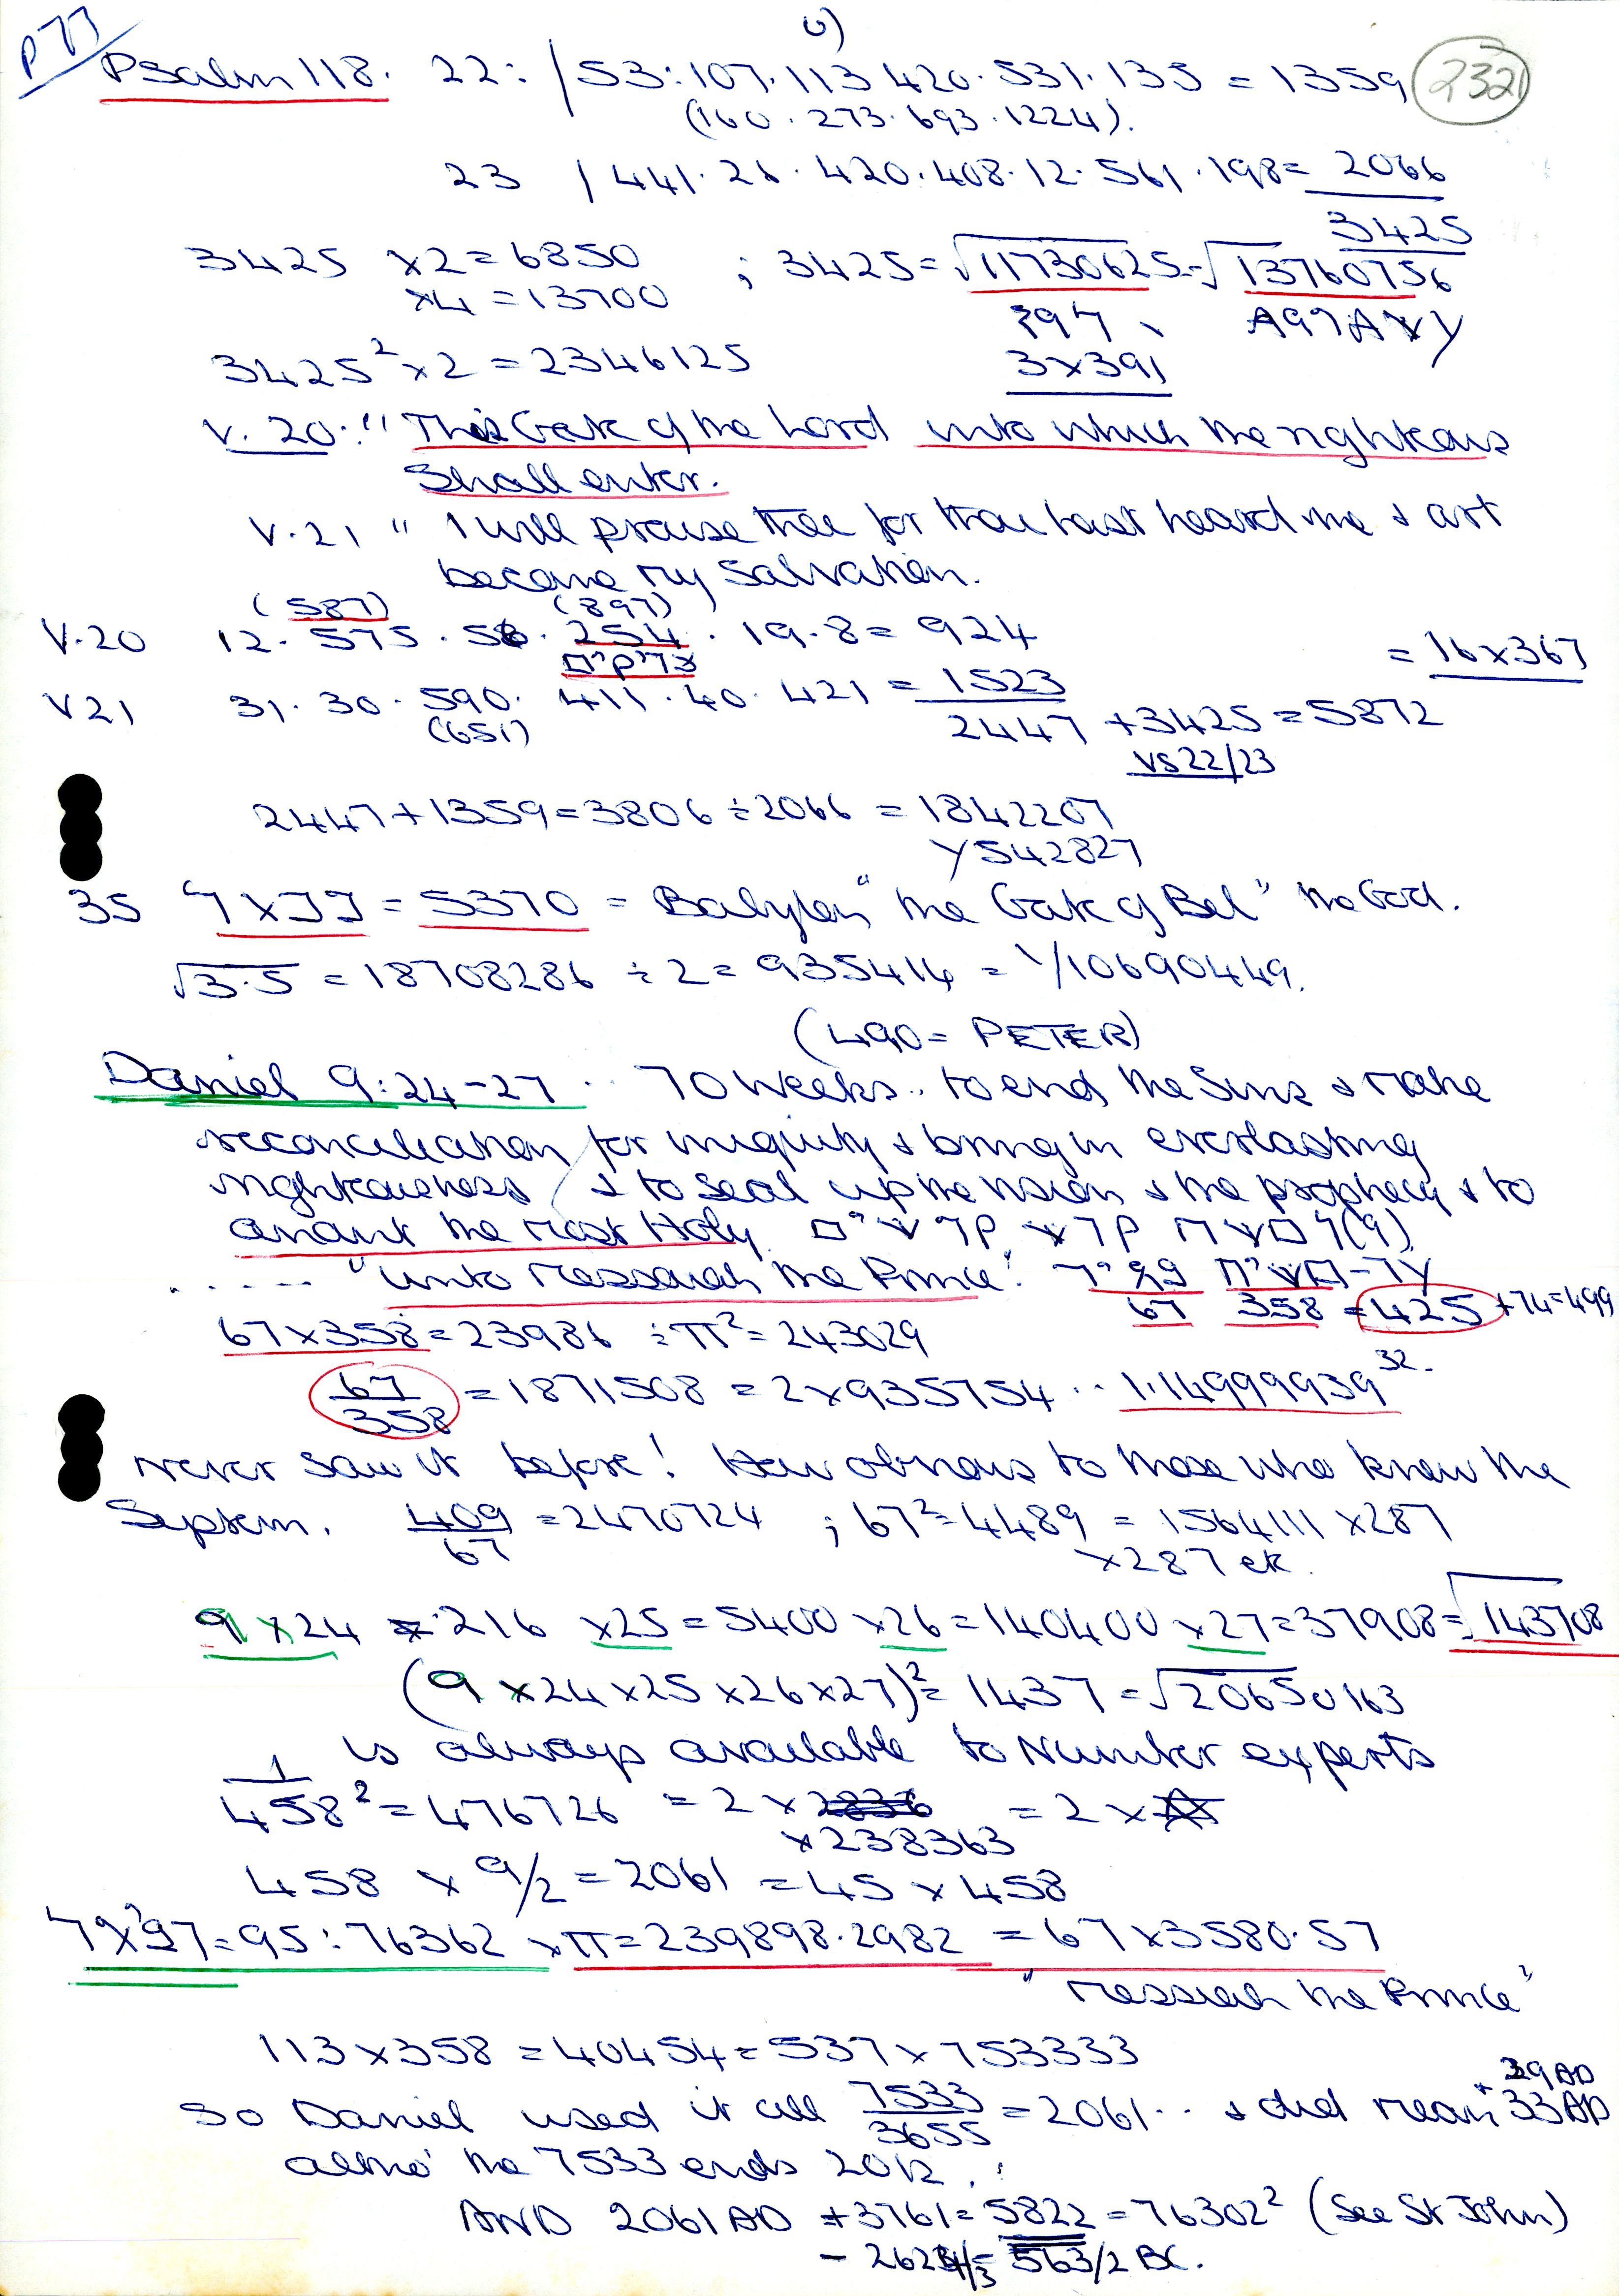 P77
v)
Psalm 118. 22: / 53:107.113 420.531.135 = 1359 2321
(160.273.693.1224).
23 / 441.26.420.408.12.561.198 = 2066
3425
3425 x2 = 6850 ; 3425 = √11730625 = √13760756
x4 = 13700
3425² x 2 = 2346125 3x391
V. 20: "This Gate of the Lord unto which the righteous
Shall enter.
V.21 " I will praise thee for thou hast heard me & art
become my Salvation.
(587) (897)
V.20 12.575.56.254.19.8 = 924
צדיקים = 16x367
V21 31.30.590.411.40.421 = 1523
(651) 2447 + 3425 = 5872
VS 22/23
2447 + 1359 = 3806 ÷ 2066 = 1842207
Y542827
35 = 5370 = Babylon "the Gate of Bel" the God.
√3.5 = 18708286 ÷ 2 = 935414 = 1/10690449.
(490 = PETER)
Daniel 9:24-27 .. 70 Weeks .. to end the Sins & make
reconciliation for iniquity & bring in everlasting
righteousness / & to Seal up the vision & the prophecy & to
anoint the most Holy.
..... "unto Messiah the Prince".
67 358 = 425 + 74 = 499
67x358 = 23986 ÷ π² = 243029
67/358 = 1871508 = 2 x 935754 .. 1.14999939³².
Never saw it before! How obvious to those who knew the
System. 409/67 = 2470724 ; 67² = 4489 = 1564111 x 287
x287 etc.
9 x 24 = 216 x25 = 5400 x26 = 140400 x27 = 37908 = √143708
(9 x24 x25 x26 x27)² = 1437 = √20650163
is always available to Number experts
1/458² = 476726 = 2 x = 2 x
x238363
458 x 9/2 = 2061 = 45 x 458
= 95:76362 x π = 239898.2982 = 67 x 3580.57
"Messiah the Prince"
113 x 358 = 40454 = 537 x 753333
29 AD
So Daniel used it all 7533/3655 = 2061 .. & did mean + 33 AD
altho' the 7533 ends 2012.
AND 2061 AD + 3761 = 5822 = 76302² (See St John)
- 2624/3 = 563/2 BC.